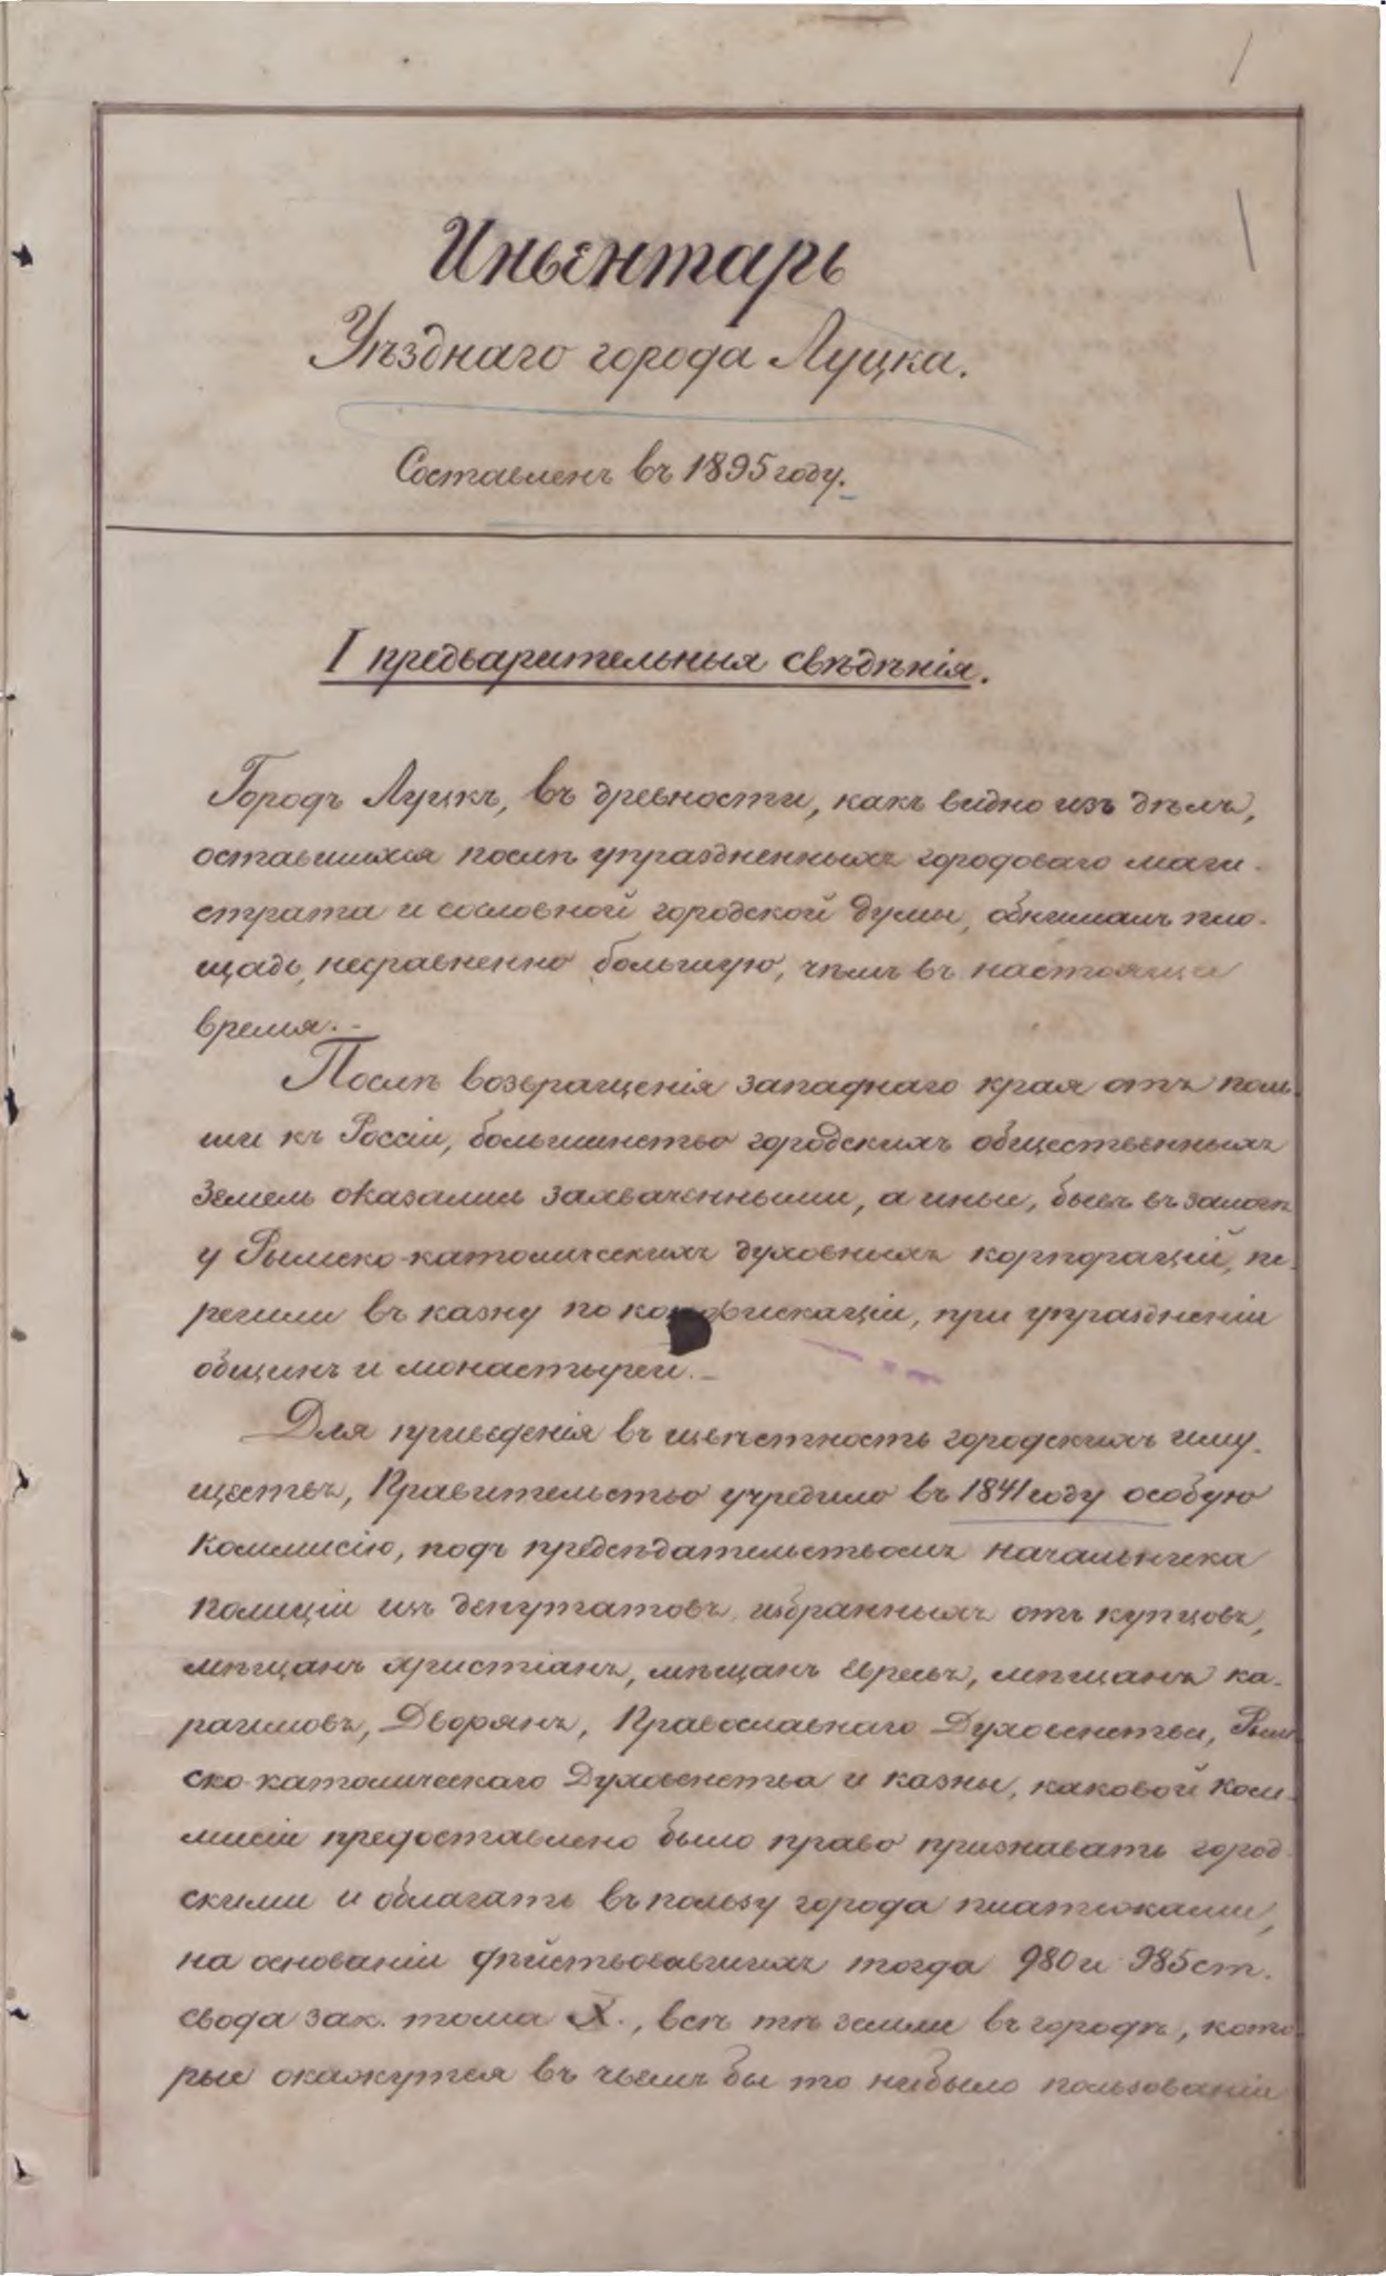 Инвентарь
Уѣзднаго города Луцка.
Составленъ въ 1895 году.
I предварительныя свѣдѣнія.
Городъ Луцкъ, въ древности, какъ видно изъ дѣлъ,
оставшихся послѣ упраздненныхъ городоваго маги-
страта и сословной городской думы, обнималъ пло-
щадь, несравненно большую, чѣмъ въ настоящее
время.-
Послѣ возвращенія западнаго края отъ поль-
ши къ Россіи, большинство городскихъ общественныхъ
земель оказались захваченными, а иныя, бывъ въ залогѣ
у Римско-католическихъ духовныхъ корпорацій, пе-
решли въ казну по конфискаціи, при упраздненіи
общинъ и монастырей.-
Для приведенія въ извѣстность городскихъ иму-
ществъ, Правительство учредило въ 1841 году особую
Коммисію, подъ предсѣдательствомъ начальника
полиціи изъ депутатовъ, избранныхъ отъ купцовъ,
мѣщанъ христіанъ, мѣщанъ евреевъ, мѣщанъ ка-
раимовъ, Дворянъ, Православнаго Духовенства, Рим-
ско-католическаго Духовенства и казны, каковой Ком-
мисіи предоставлено было право признавать город-
скими и облагать въ пользу города платежами,
на основаніи дѣйствовавшихъ тогда 980 и 985 ст.
свода зак. тома X., всѣ тѣ земли въ городѣ, кото-
рые окажутся въ чьемъ бы то нибыло пользованіи